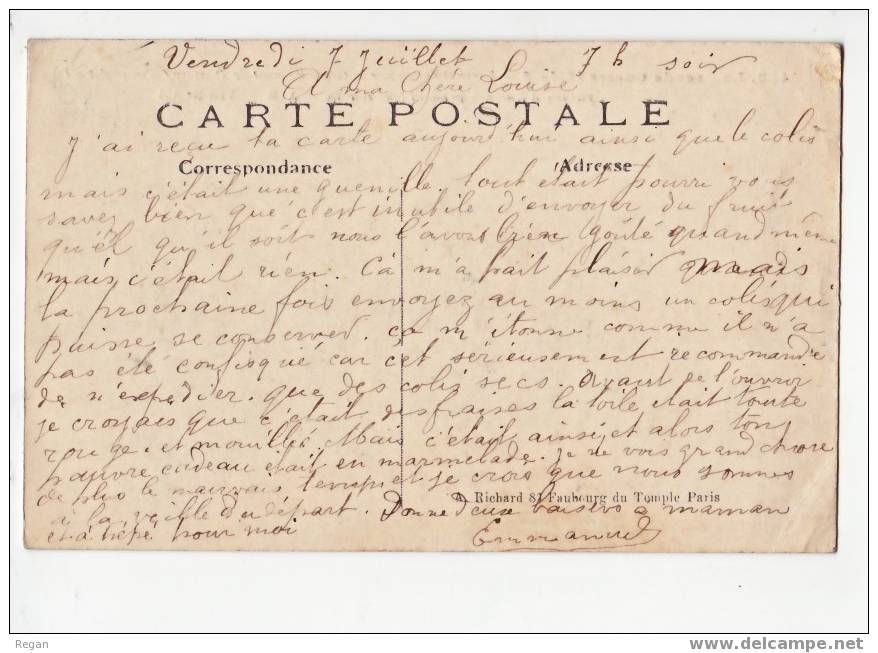 Vendredi 7 Juillet 7 h soir
A ma Chère Louise
CARTE POSTALE
J'ai reçu ta carte aujourd'hui ainsi que le colis
Correspondance Adresse
mais c'était une guenille. tout était pourri vous
savez bien que c'est inutile d'envoyer du fruit
qu'él qu'il soit nous l'avons bien goûté quand même
mais c'était rien. Cà m'a fait plaisir mais
la prochaine fois envoyez au moins un colis qui
puisse se conserver. ça m'étonne comme il n'a
pas été confisqué car c'et sérieusement recommandé
de n'expédier que des colis secs. Avant de l'ouvrir
je croyais que c'était des fraises la toile était toute
rouge et mouillée. Mais c'était ainsi et alors ton
pauvre cadeau était en marmelade. je ne vois grand chose
de plus le mauvais temps et je crois que nous sommes
A. Richard 84 Faubourg du Temple Paris
à la veille du départ. Donne deux baisers a maman
et à pour moi
Emmanuel
Regan
www.delcampe.net